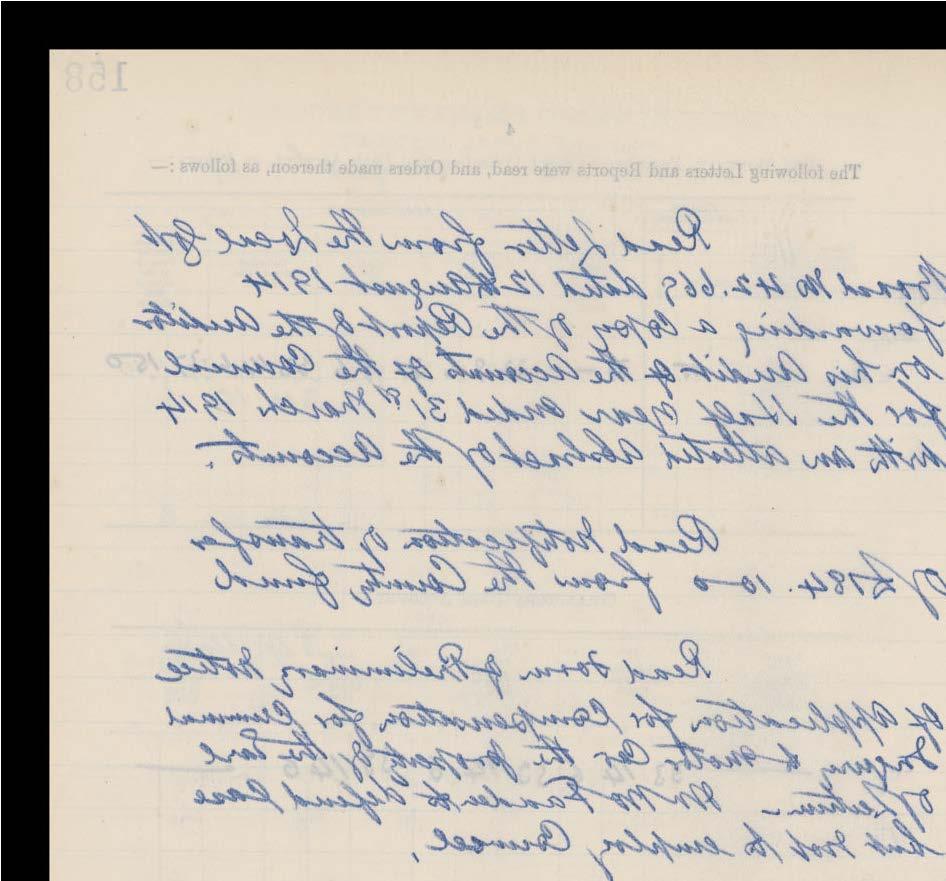 158
4
The following Letters and Reports were read, and Orders made thereon, as follows :—
Read Letter from the Local Govt
Board No 42.665 dated 12th August 1914
forwarding a Copy of the Report of the Auditor
on his Audit of the Accounts of the Council
for the Half year ended 31st March 1914
with an attested Abstract of the Accounts.
Read Notification of transfer
of £784. 10-0 from the County Fund
Read Form of Preliminary Notice
of Application for Compensation for Criminal
Injury to Motor Car the property of the Earl
of
Mr to defend Case
but not to employ Counsel.